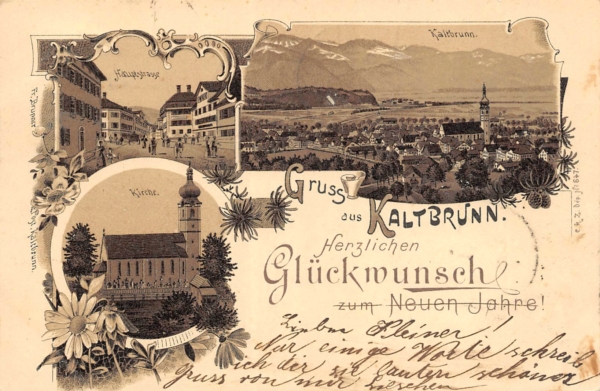 Kaltbrunn.
Hauptstrasse
Kirche.
Gruss
aus Kaltbrunn.
Herzlichen
Glückwunsch
zum Neuen Jahre!
Lieber Kleiner!
Nur einige Worte schreib
ich der zu lautern schönen
Gruss von mir